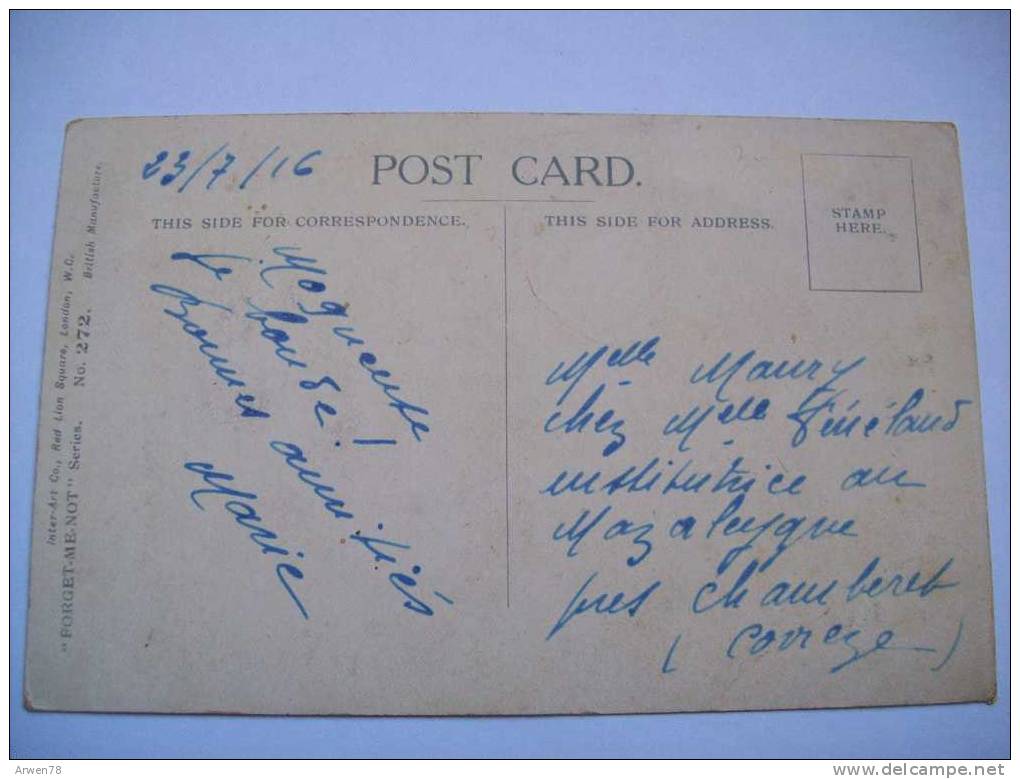 23/7/16
POST CARD.
THIS SIDE FOR CORRESPONDENCE.
THIS SIDE FOR ADDRESS.
STAMP
HERE.
Moqueuse
je boude !
Bonnes amitiés
Marie
Melle Maury
chez Melle
institutrice au
Mazaleygue
près Chamberet
(Corrèze)
Inter-Art Co., Red Lion Square, London, W.C.
"FORGET-ME-NOT" Series. No. 272. British Manufacture.
Arwen78
www.delcampe.net